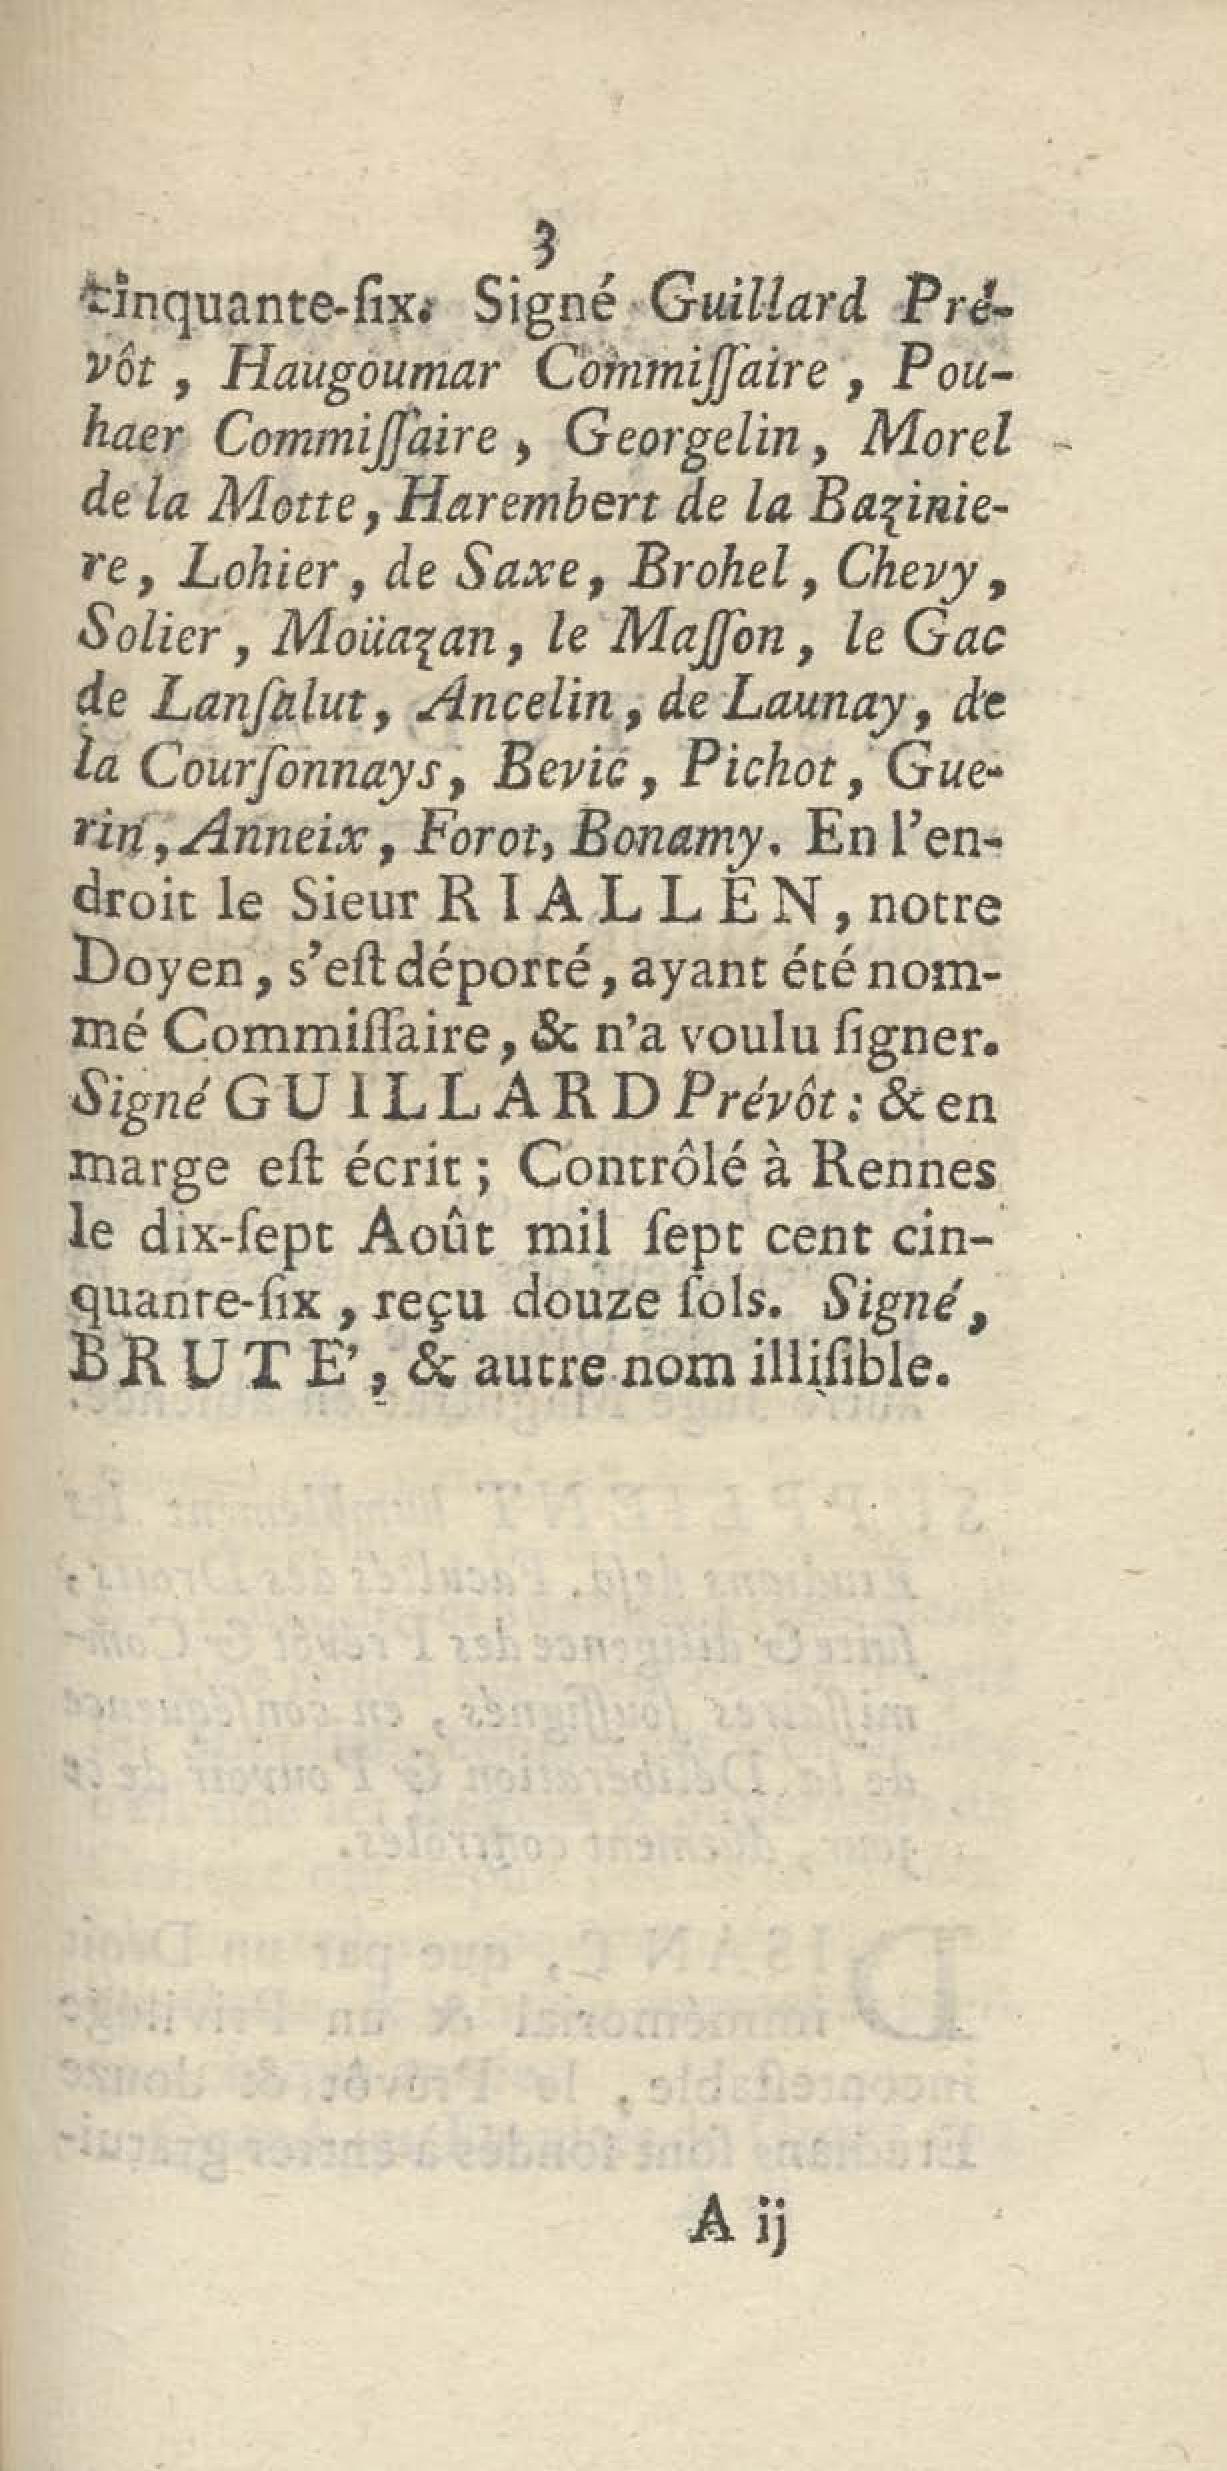 3
cinquante-ſix. Signé Guillard Pré-
vôt, Haugoumar Commiſſaire, Pou-
haer Commiſſaire, Georgelin, Morel
de la Motte, Harembert de la Bazinie-
re, Lohier, de Saxe, Brohel, Chevy,
Solier, Moüazan, le Maſſon, le Gac
de Lanſalut, Ancelin, de Launay, de
la Courſonnays, Bevic, Pichot, Gue-
rin, Anneix, Forot, Bonamy. En l'en-
droit le Sieur RIALLEN, notre
Doyen, s'eſt déporté, ayant été nom-
mé Commiſſaire, & n'a voulu ſigner.
Signé GUILLARD Prévôt : & en
marge eſt écrit ; Contrôlé à Rennes
le dix-ſept Août mil ſept cent cin-
quante-ſix, reçu douze ſols. Signé,
BRUTE', & autre nom illiſible.
A ij